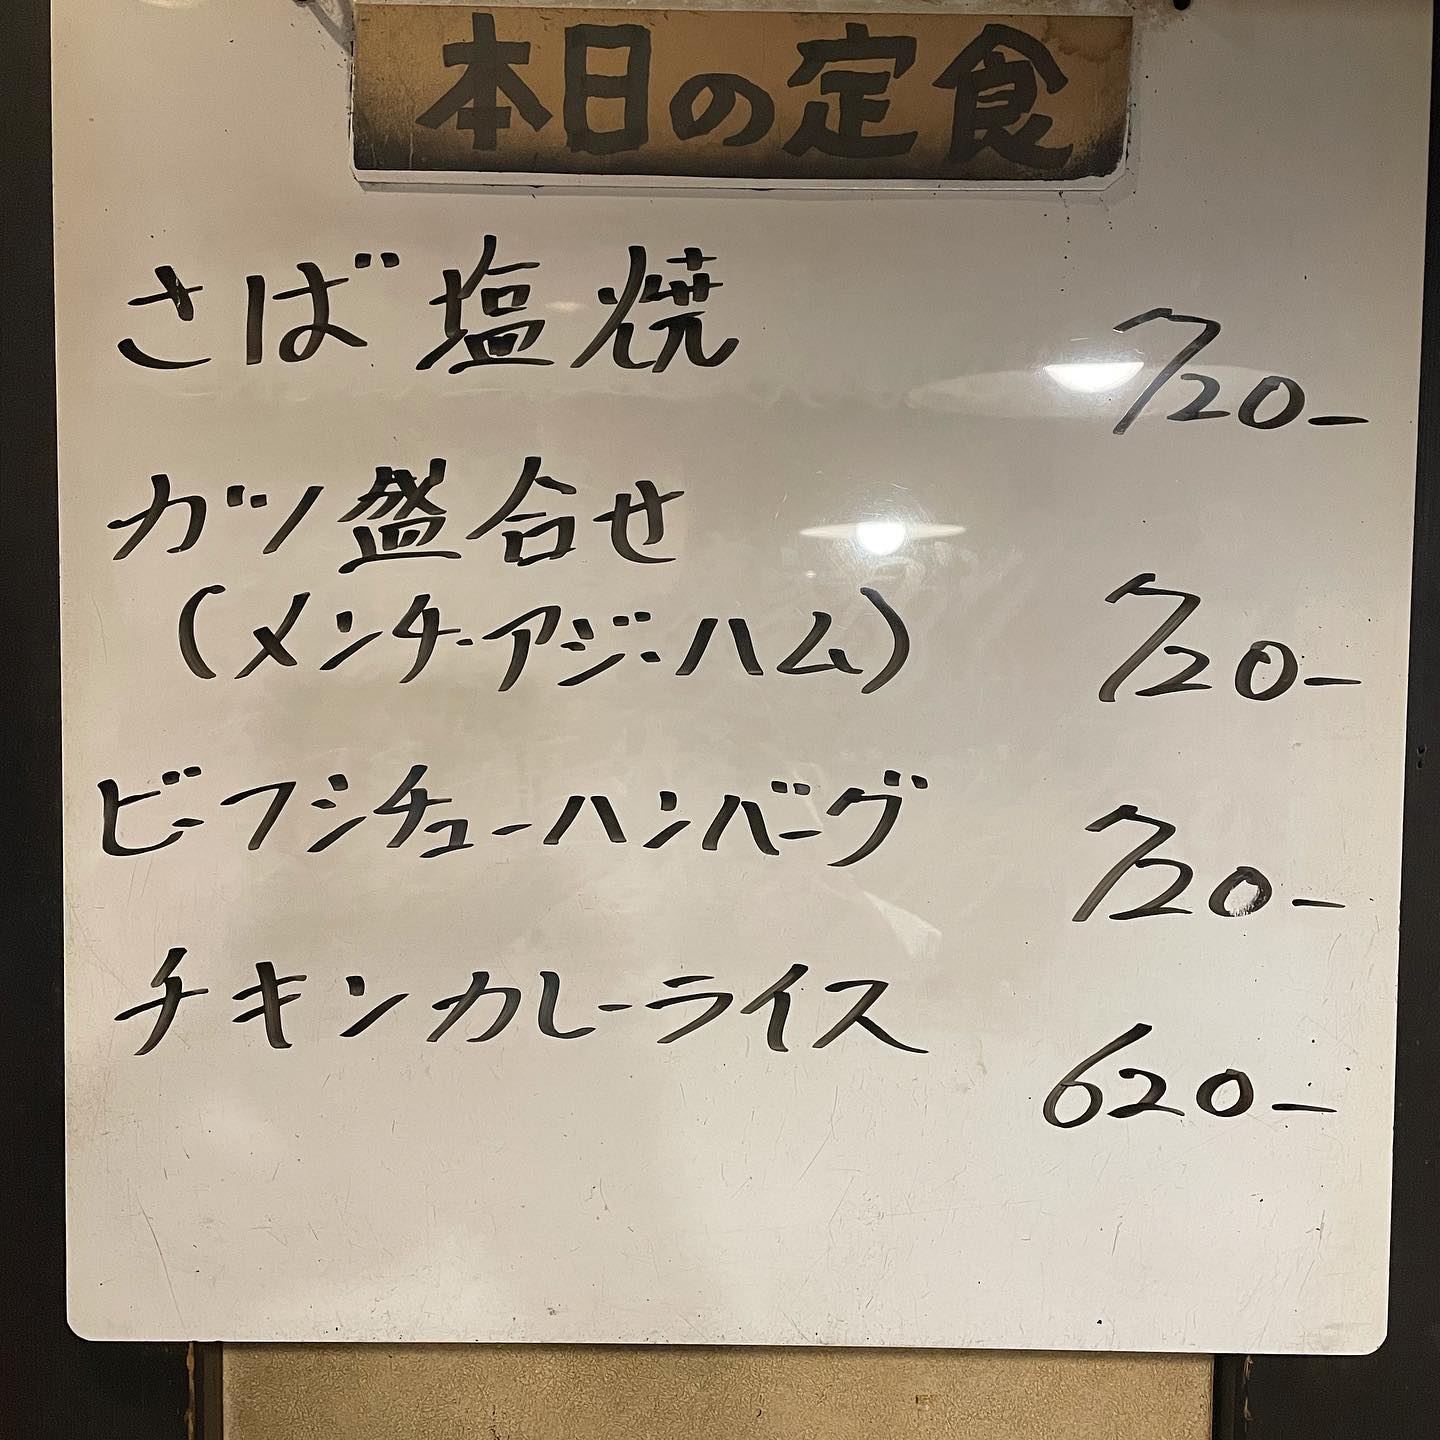 本日の定食
さば塩焼
720-
カツ盛合せ
(メンチ・アジ・ハム)
720-
ビーフシチューハンバーグ
720-
チキンカレーライス
620-